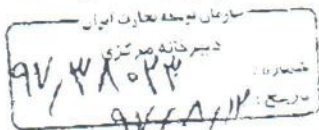 سازمان توسعه تجارت ایران
دبیرخانه مرکزی
شماره: ۹۷/۳۸۰۲۳
تاریخ: ۹۷/۸/۱۲